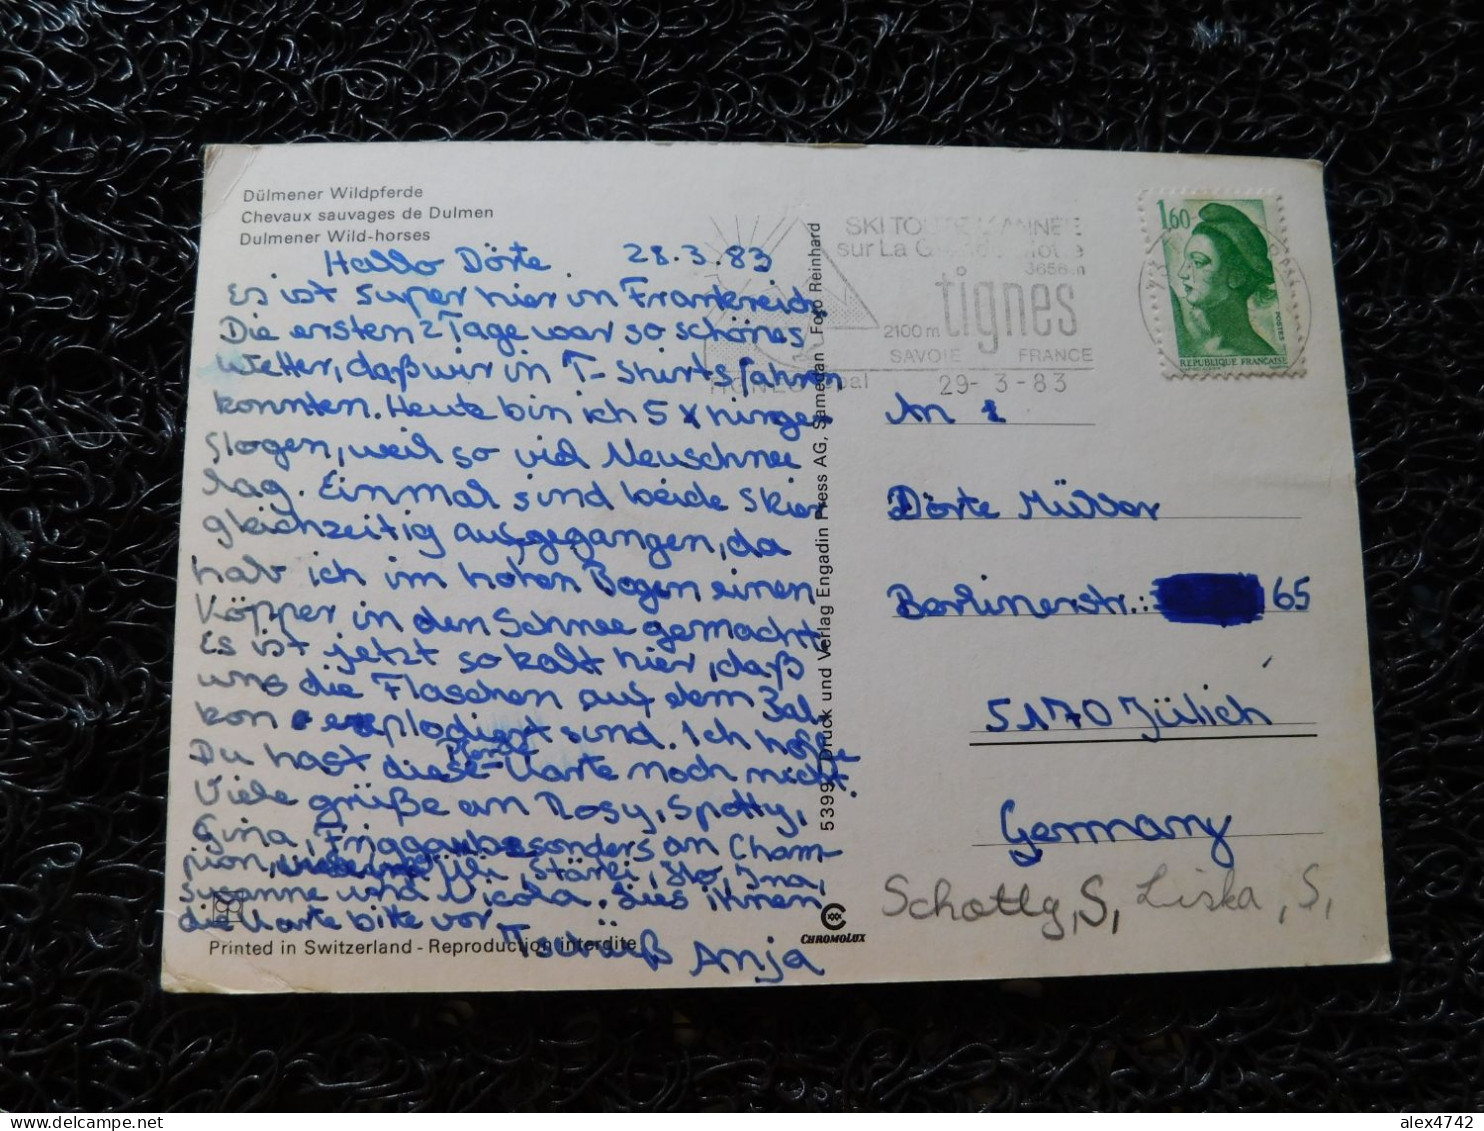 Dülmener Wildpferde
Chevaux sauvages de Dulmen
Dulmener Wild-horses
Hallo Dörte 28.3.83
Es ist super hier in Frankreich.
Die ersten 2 Tage war so schönes
Wetter, daß wir in T-Shirts fahren
konnten. Heute bin ich 5 x hinge-
flogen, weil so viel Neuschnee
lag. Einmal sind beide Skier
gleichzeitig aufgegangen, da
hab ich im hohen Bogen einen
Köpper in den Schnee gemacht.
Es ist jetzt so kalt hier, daß
uns die Flaschen auf dem Bal
kon explodiert sind. Ich hoffe
Du hast diese Karte noch nicht.
Viele grüße an Rosy, Spotty,
Gina, Frigga besonders an Cham-
pion, Uli, Stärki, Ina,
Susanne und Nicola. Lies ihnen
die Karte bitte vor.
Tschüß Anja
Printed in Switzerland - Reproduction interdite
5399 Druck und Verlag Engadin Press AG, Samedan Foto Reinhard
CHROMOLUX
SKI TOUTE L'ANNÉE
sur La Grande Motte
3656 m
tignes
2100 m
SAVOIE FRANCE
29-3-83
1,60
POSTES
REPUBLIQUE FRANÇAISE
An
Dörte Müller
Berlinerstr.: 65
5170 Jülich
Germany
Schotty, S, Liska, S,